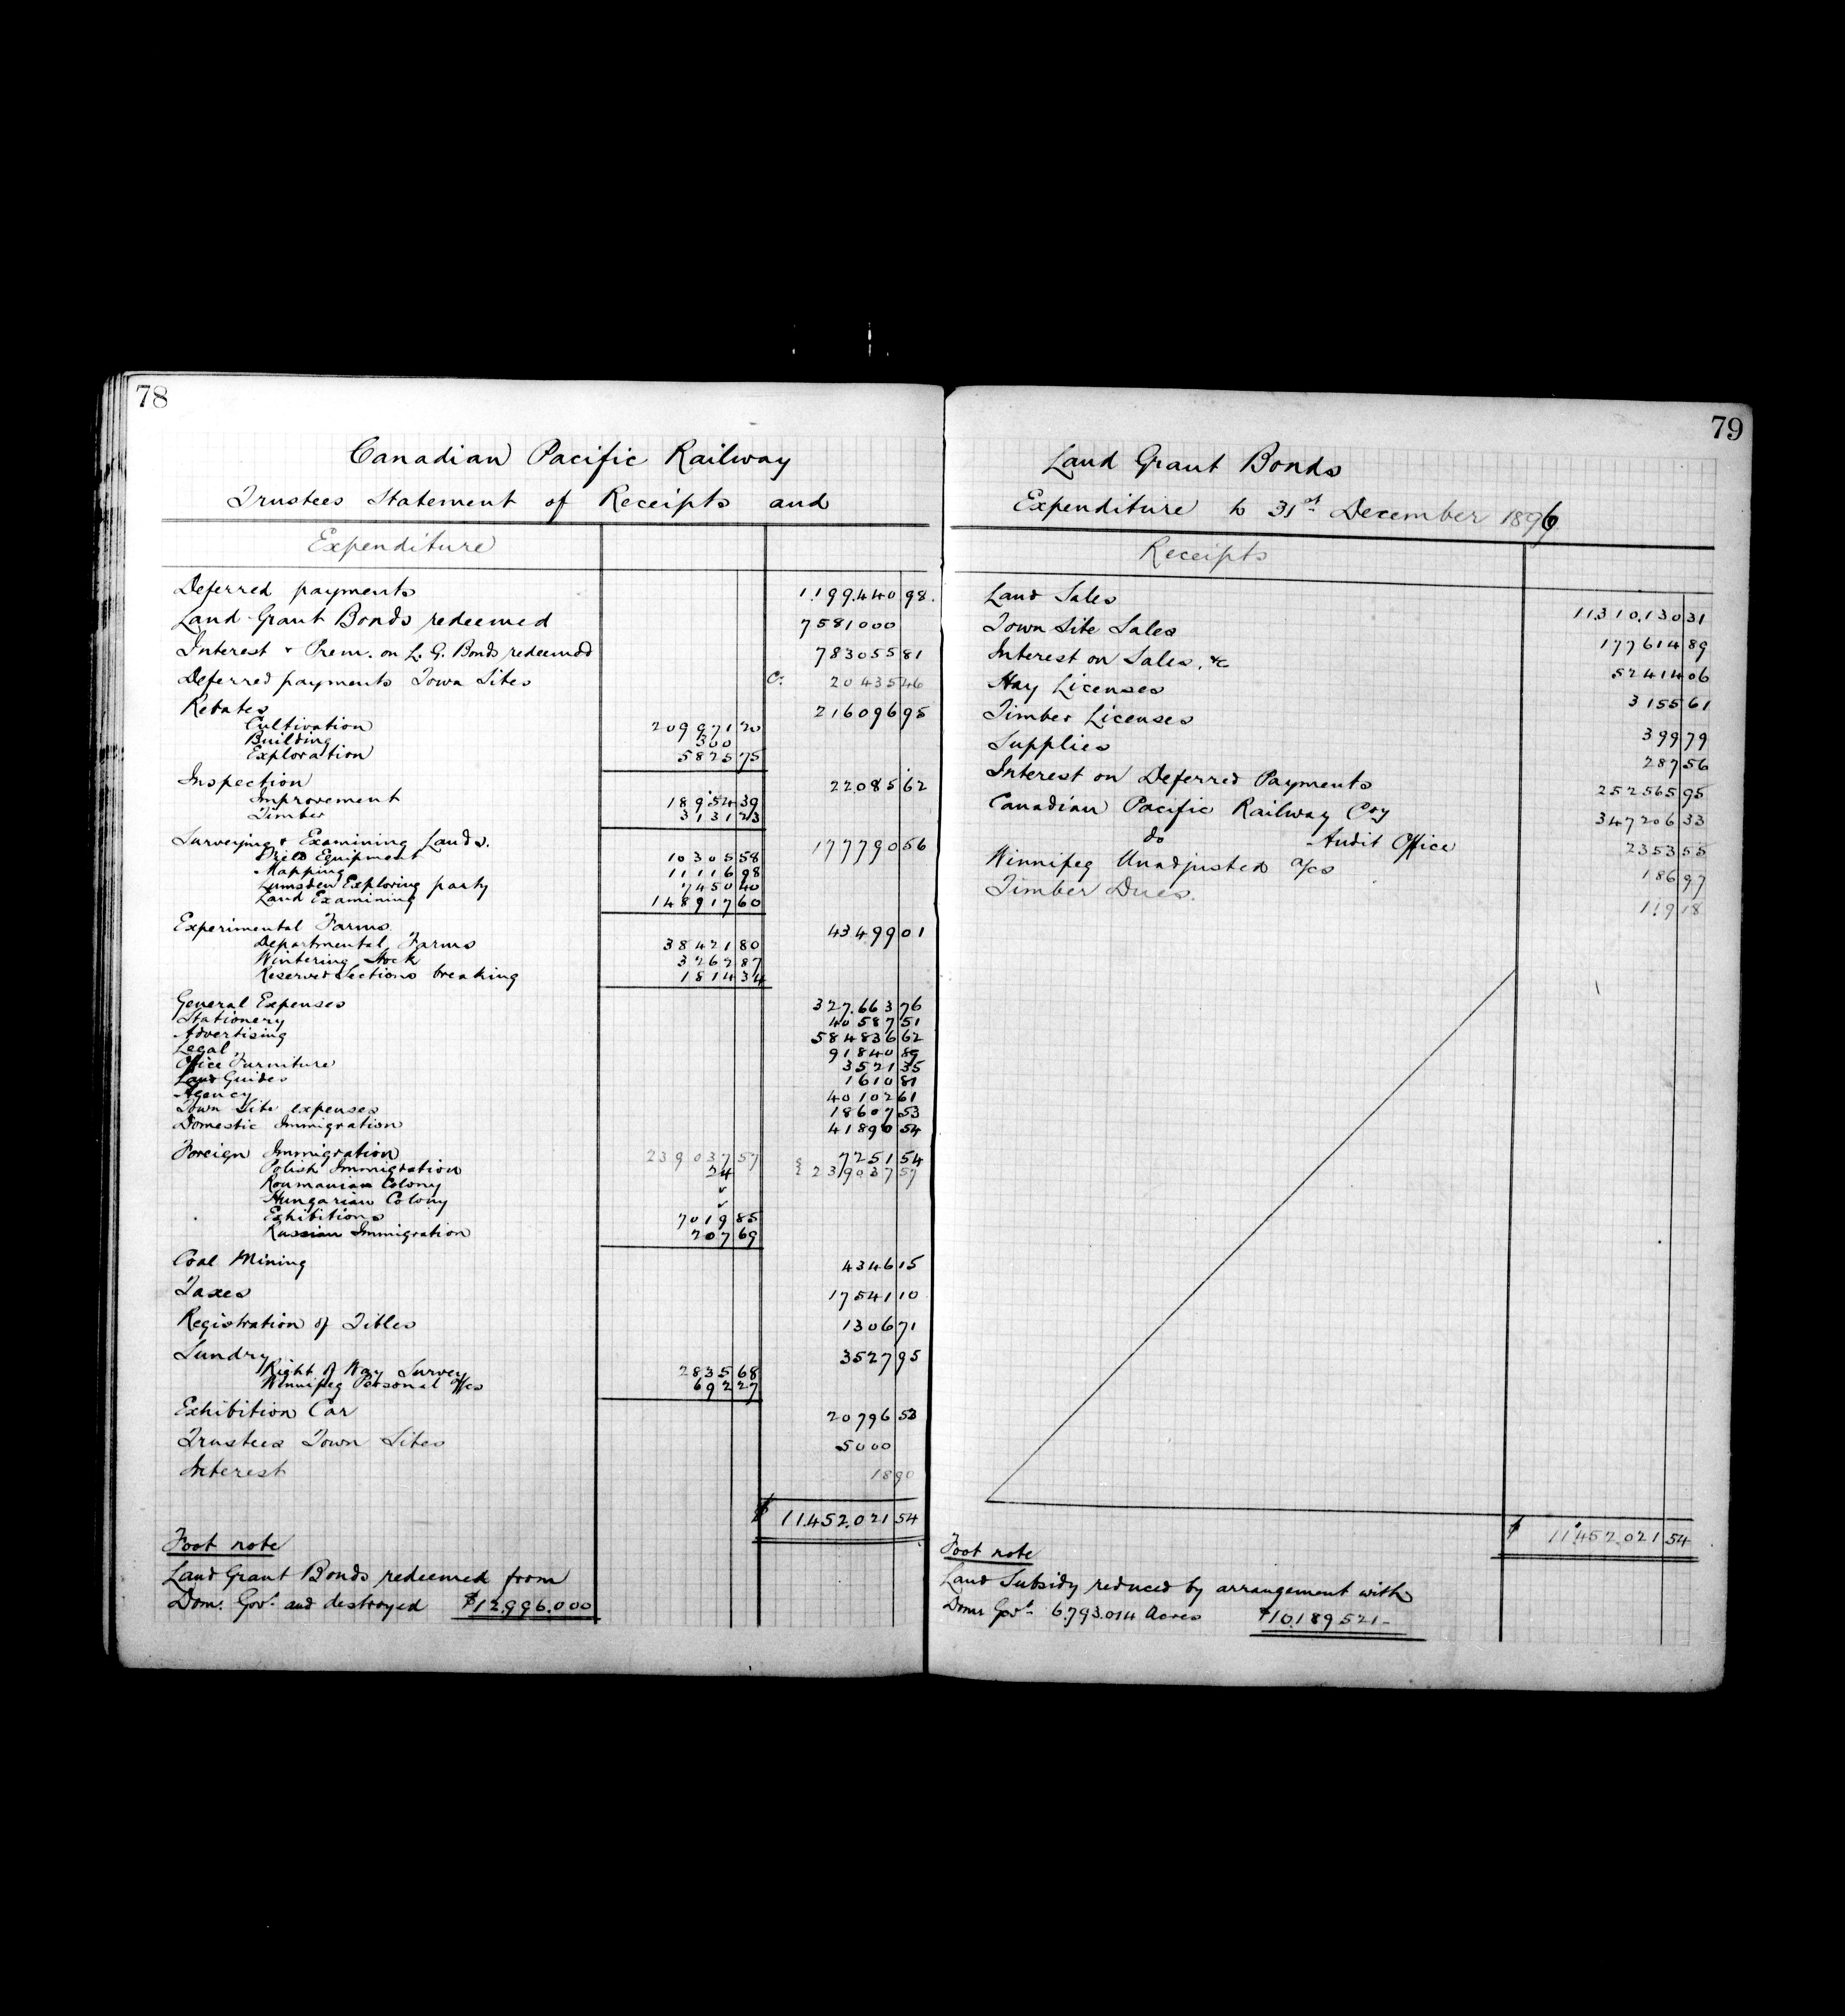 78
Canadian Pacific Railway
Trustees Statement of Receipts and
Expenditure
Deferred payments 1.199.440 98.
Land Grant Bonds redeemed 7581000
Interest & Prem. on L. G. Bonds redeemed 783055 81
Deferred payments Town Sites Cr. 20435 46
Rebates 216096 95
Cultivation 209971 20
Building 300
Exploration 5825 75
Inspection 22085 62
Improvement 18954 39
Timber 3131 23
Surveying & Examining Lands. 177790 56
Field Equipment 10305 58
Mapping 11116 98
Lumsden Exploring party 7450 40
Land Examining 148917 60
Experimental Farms 43499 01
Departmental Farms 38421 80
Wintering Stock 3262 87
Reserved Sections breaking 1814 34
General Expenses 327.663 76
Stationery 40587 51
Advertising 584836 62
Legal 91840 89
Office Furniture 3521 35
Land Guides 1610 81
Agency 40102 61
Town Site expenses 18607 53
Domestic Immigration 41890 54
Foreign Immigration 239037 57 7251 54
Polish Immigration 24 239037 57
Roumanian Colony ✓
Hungarian Colony ✓
Exhibitions 7019 85
Russian Immigration 207 69
Coal Mining 4346 15
Taxes 17541 10
Registration of Titles 1306 71
Sundry 3527 95
Right of Way Survey 2835 68
Winnipeg Personal a/cs 692 27
Exhibition Car 20796 53
Trustees Town Sites 5000
Interest 18 90
$ 11.452.021 54
Foot note
Land Grant Bonds redeemed from
Dom. Govt. and destroyed $12.996.000
79
Land Grant Bonds
Expenditure to 31st December 1896
Receipts
Land Sales 11.310.130 31
Town Site Sales 177614 89
Interest on Sales, &c 52414 06
Hay Licenses 3155 61
Timber Licenses 399 79
Supplies 287 56
Interest on Deferred Payments 252565 95
Canadian Pacific Railway Coy 347206 33
do Audit Office 2353 55
Winnipeg Unadjusted a/cs 186 97
Timber Dues. 119 18
$ 11.452.021 54
Foot note
Land Subsidy reduced by arrangement with
Domn Govt. 6.793.014 Acres $10.189.521-